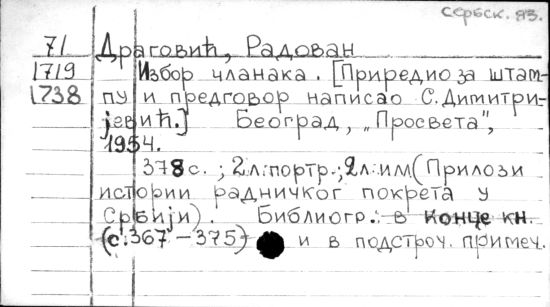 Сербск. яз.
71 Драговић, Радован
1719 Избор чланака. [Приредио за штам-
1738 пу и предговор написао С. Димитри-
јевић.] Београд, „Просвета",
1954.
378 с. ; 2 л. портр.; 2 л. илл (Прилози
историји радничког покрета у
Србији). Библиогр.: в конце кн.
(с. 367 – 375) и в подстроч. примеч.